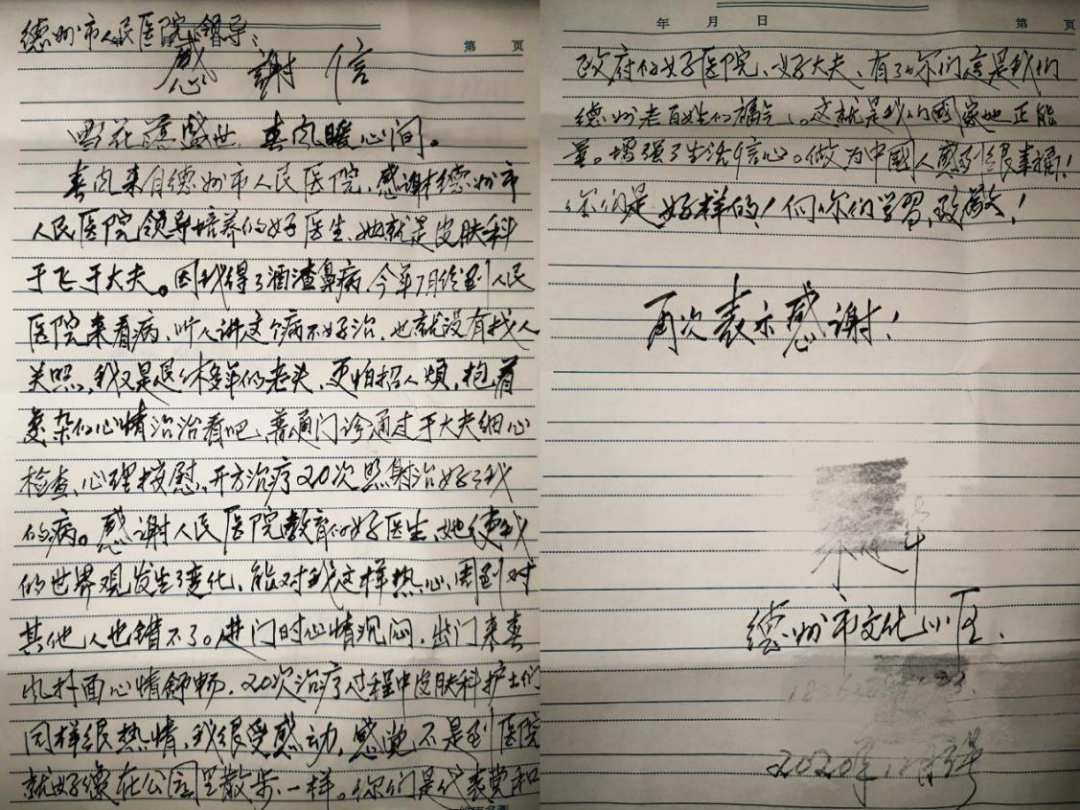 德州市人民医院领导:
第 页
感謝信
雪花蘸盛世 春风暖心间。
春风来自德州市人民医院,感谢德州市
人民医院领导培养的好医生,她就是皮肤科
于飞于大夫。因我得了酒渣鼻病,今年7月经到人民
医院来看病,听人讲这个病不好治,也就没有找人
关照,我又是退休多年的老头,更怕招人烦,抱着
复杂的心情治治看吧,普通门诊通过于大夫细心
检查、心理按慰、开方治疗20次照射治好了我
的病。感谢人民医院教育的好医生,她使我
的世界观发生了变化,能对我这样热心、周到对
其他人也错不了。进门时心情沉闷,出门来春
风扑面心情舒畅,20次治疗过程中皮肤科护士们
同样很热情,我很受感动,感觉不是到医院
就好像在公园里散步一样。你们是代表党和
年 月 日
第 页
政府的好医院、好大夫、有了你们真是我们
德州老百姓的福气。这就是我们國家地正能
量。增强了生活信心。做为中國人感到很幸福!
你们是好样的!向你们学習,致敬!
再次表示感谢!
德州市文化小区
2020年